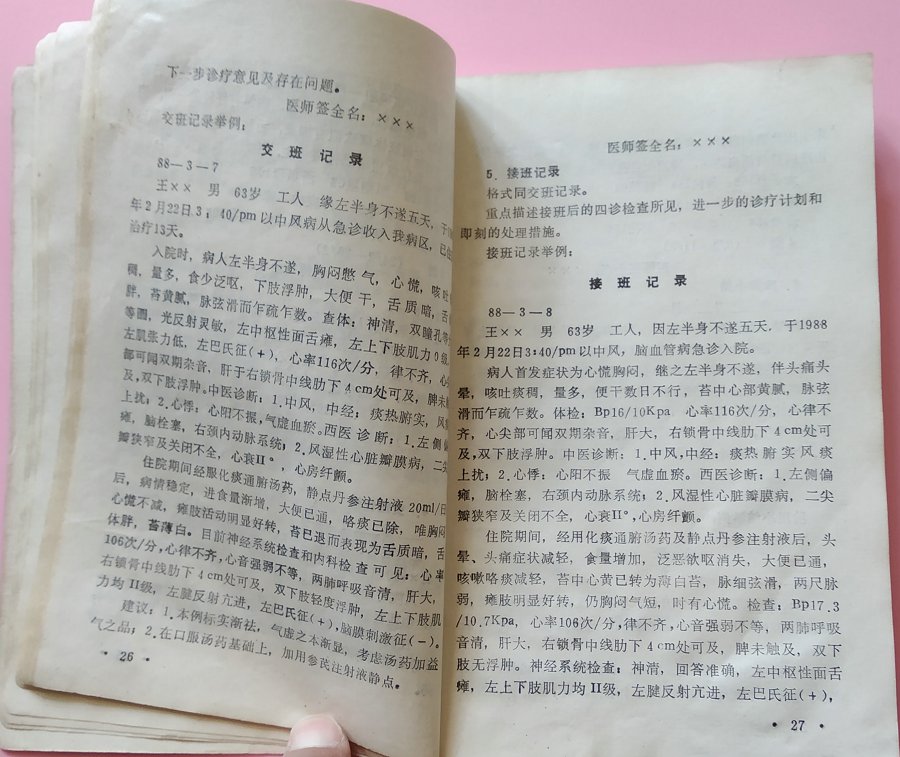 下一步诊疗意见及存在问题。
医师签全名：×××
交班记录举例：
交班记录
88—3—7
王×× 男 63岁 工人 缘左半身不遂五天，于
年2月22日3：40/pm以中风病从急诊收入我病区，已
治疗13天。
入院时，病人左半身不遂，胸闷憋气，心慌，咳吐
稠，量多，食少泛呕，下肢浮肿，大便干，舌质暗，舌
胖，苔黄腻，脉弦滑而乍疏乍数。查体：神清，双瞳孔等
等圆，光反射灵敏，左中枢性面舌瘫，左上下肢肌力0级，
左肌张力低，左巴氏征(+)，心率116次/分，律不齐，心
部可闻双期杂音，肝于右锁骨中线肋下4cm处可及，脾未
及，双下肢浮肿。中医诊断：1.中风，中经：痰热腑实，风
上扰；2.心悸：心阳不振，气虚血瘀。西医诊断：1.左侧偏
瘫，脑栓塞，右颈内动脉系统；2.风湿性心脏瓣膜病，二尖
瓣狭窄及关闭不全，心衰Ⅱ°，心房纤颤。
住院期间经服化痰通腑汤药，静点丹参注射液20ml/日
后，病情稳定，进食量渐增，大便已通，咯痰已除，唯胸闷
心慌不减，瘫肢活动明显好转，苔已退而表现为舌质暗，舌
体胖，苔薄白。目前神经系统检查和内科检查可见：心率
106次/分，心律不齐，心音强弱不等，两肺呼吸音清，肝大，
右锁骨中线肋下4cm处可及，双下肢轻度浮肿，左上下肢肌
力均Ⅱ级，左腱反射亢进，左巴氏征(+)，脑膜刺激征(－)。
建议：1.本例标实渐祛，气虚之本渐显，考虑汤药加益
气之品；2.在口服汤药基础上，加用参芪注射液静点。
· 26 ·
医师签全名：×××
5．接班记录
格式同交班记录。
重点描述接班后的四诊检查所见，进一步的诊疗计划和
即刻的处理措施。
接班记录举例：
接班记录
88—3—8
王×× 男 63岁 工人，因左半身不遂五天，于1988
年2月22日3:40/pm以中风，脑血管病急诊入院。
病人首发症状为心慌胸闷，继之左半身不遂，伴头痛头
晕，咳吐痰稠，量多，便干数日不行，苔中心部黄腻，脉弦
滑而乍疏乍数。体检：Bp16/10Kpa 心率116次/分，心律不
齐，心尖部可闻双期杂音，肝大，右锁骨中线肋下4cm处可
及，双下肢浮肿。中医诊断：1.中风，中经：痰热腑实风痰
上扰；2.心悸：心阳不振 气虚血瘀。西医诊断：1.左侧偏
瘫，脑栓塞，右颈内动脉系统；2.风湿性心脏瓣膜病，二尖
瓣狭窄及关闭不全，心衰Ⅱ°，心房纤颤。
住院期间，经用化痰通腑汤药及静点丹参注射液后，头
晕、头痛症状减轻，食量增加，泛恶欲呕消失，大便已通，
咳嗽咯痰减轻，苔中心黄已转为薄白苔，脉细弦滑，两尺脉
弱，瘫肢明显好转，仍胸闷气短，时有心慌。检查：Bp17.3
/10.7Kpa，心率106次/分，律不齐，心音强弱不等，两肺呼吸
音清，肝大，右锁骨中线肋下4cm处可及，脾未触及，双下
肢无浮肿。神经系统检查：神清，回答准确，左中枢性面舌
瘫，左上下肢肌力均Ⅱ级，左腱反射亢进，左巴氏征(+)，
· 27 ·